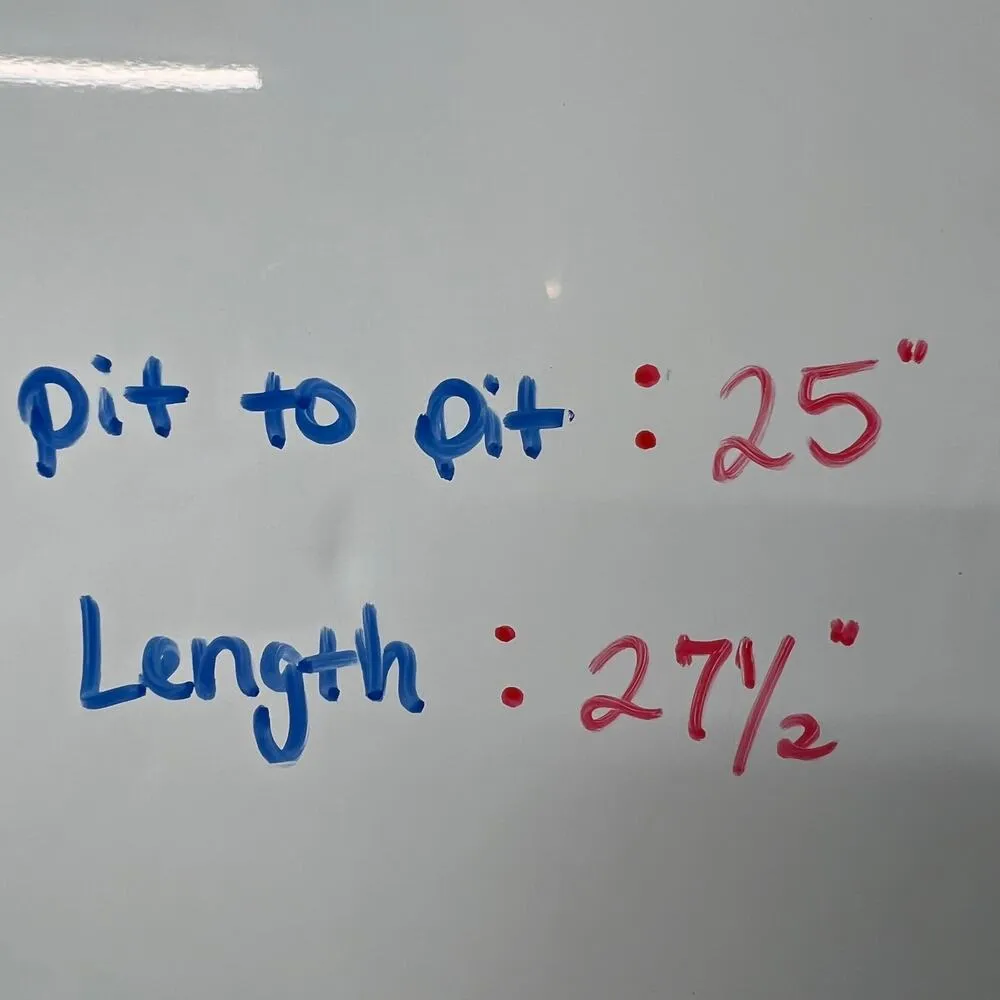 pit to pit : 25"
Length : 27 1/2"